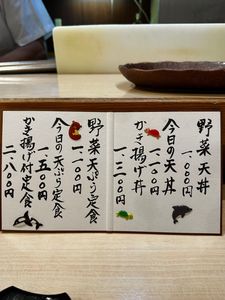 野菜天丼
一、〇〇〇円
今日の天丼
一、一〇〇円
かき揚げ丼
一、三〇〇円
野菜天ぷら定食
一、一〇〇円
今日の天ぷら定食
一、五〇〇円
かき揚げ付定食
二、八〇〇円